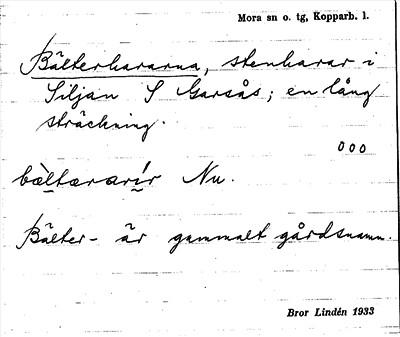 Mora sn o. tg, Kopparb. l.
Bälterhararna, stenharar i
Siljan S Garsås; en lång
sträckning.
ooo
bæ̀ltærarır Nu.
Bälter- är gammalt gårdsnamn.
Bror Lindén 1933